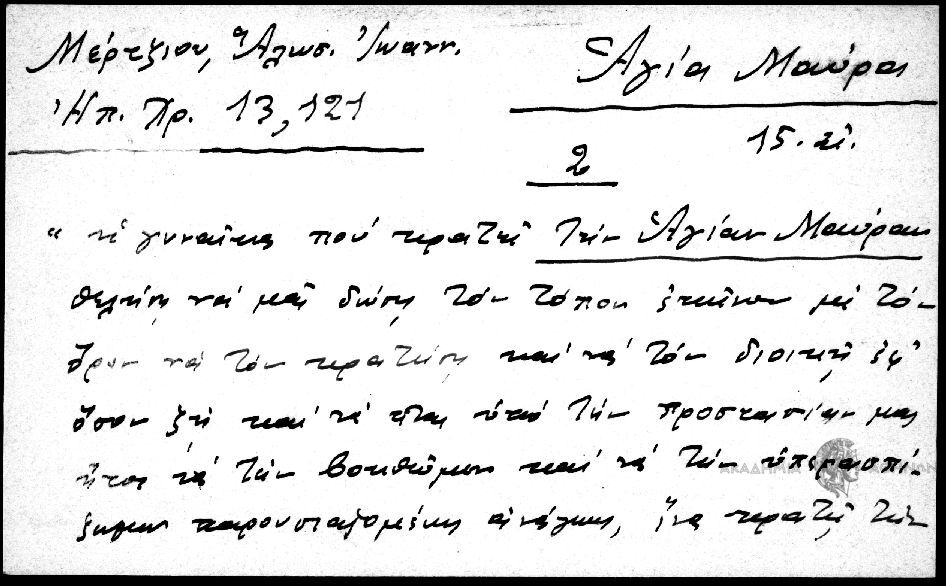 Μέρτζιου, Ἅλωσ. Ἰωανν.
Ἠπ. Χρ. 13,121
Ἁγία Μαύρα
15. αἰ.
2
"ἡ γυναῖκα ποὺ κρατεῖ τὴν Ἁγίαν Μαύραν
θελήσῃ νὰ μᾶς δώσῃ τὸν τόπον ἐκεῖνον μὲ τὸν
ὅρον νὰ τὸν κρατήσῃ καὶ νὰ τὸν διοικῇ ἐφ'
ὅσον ζῇ καὶ νὰ εἶναι ὑπὸ τὴν προστασίαν μας
ἤτοι νὰ τὴν βοηθῶμεν καὶ νὰ τὴν ὑπερασπί-
ζωμεν παρουσιαζομένης ἀνάγκης, ἵνα κρατῇ τὴν